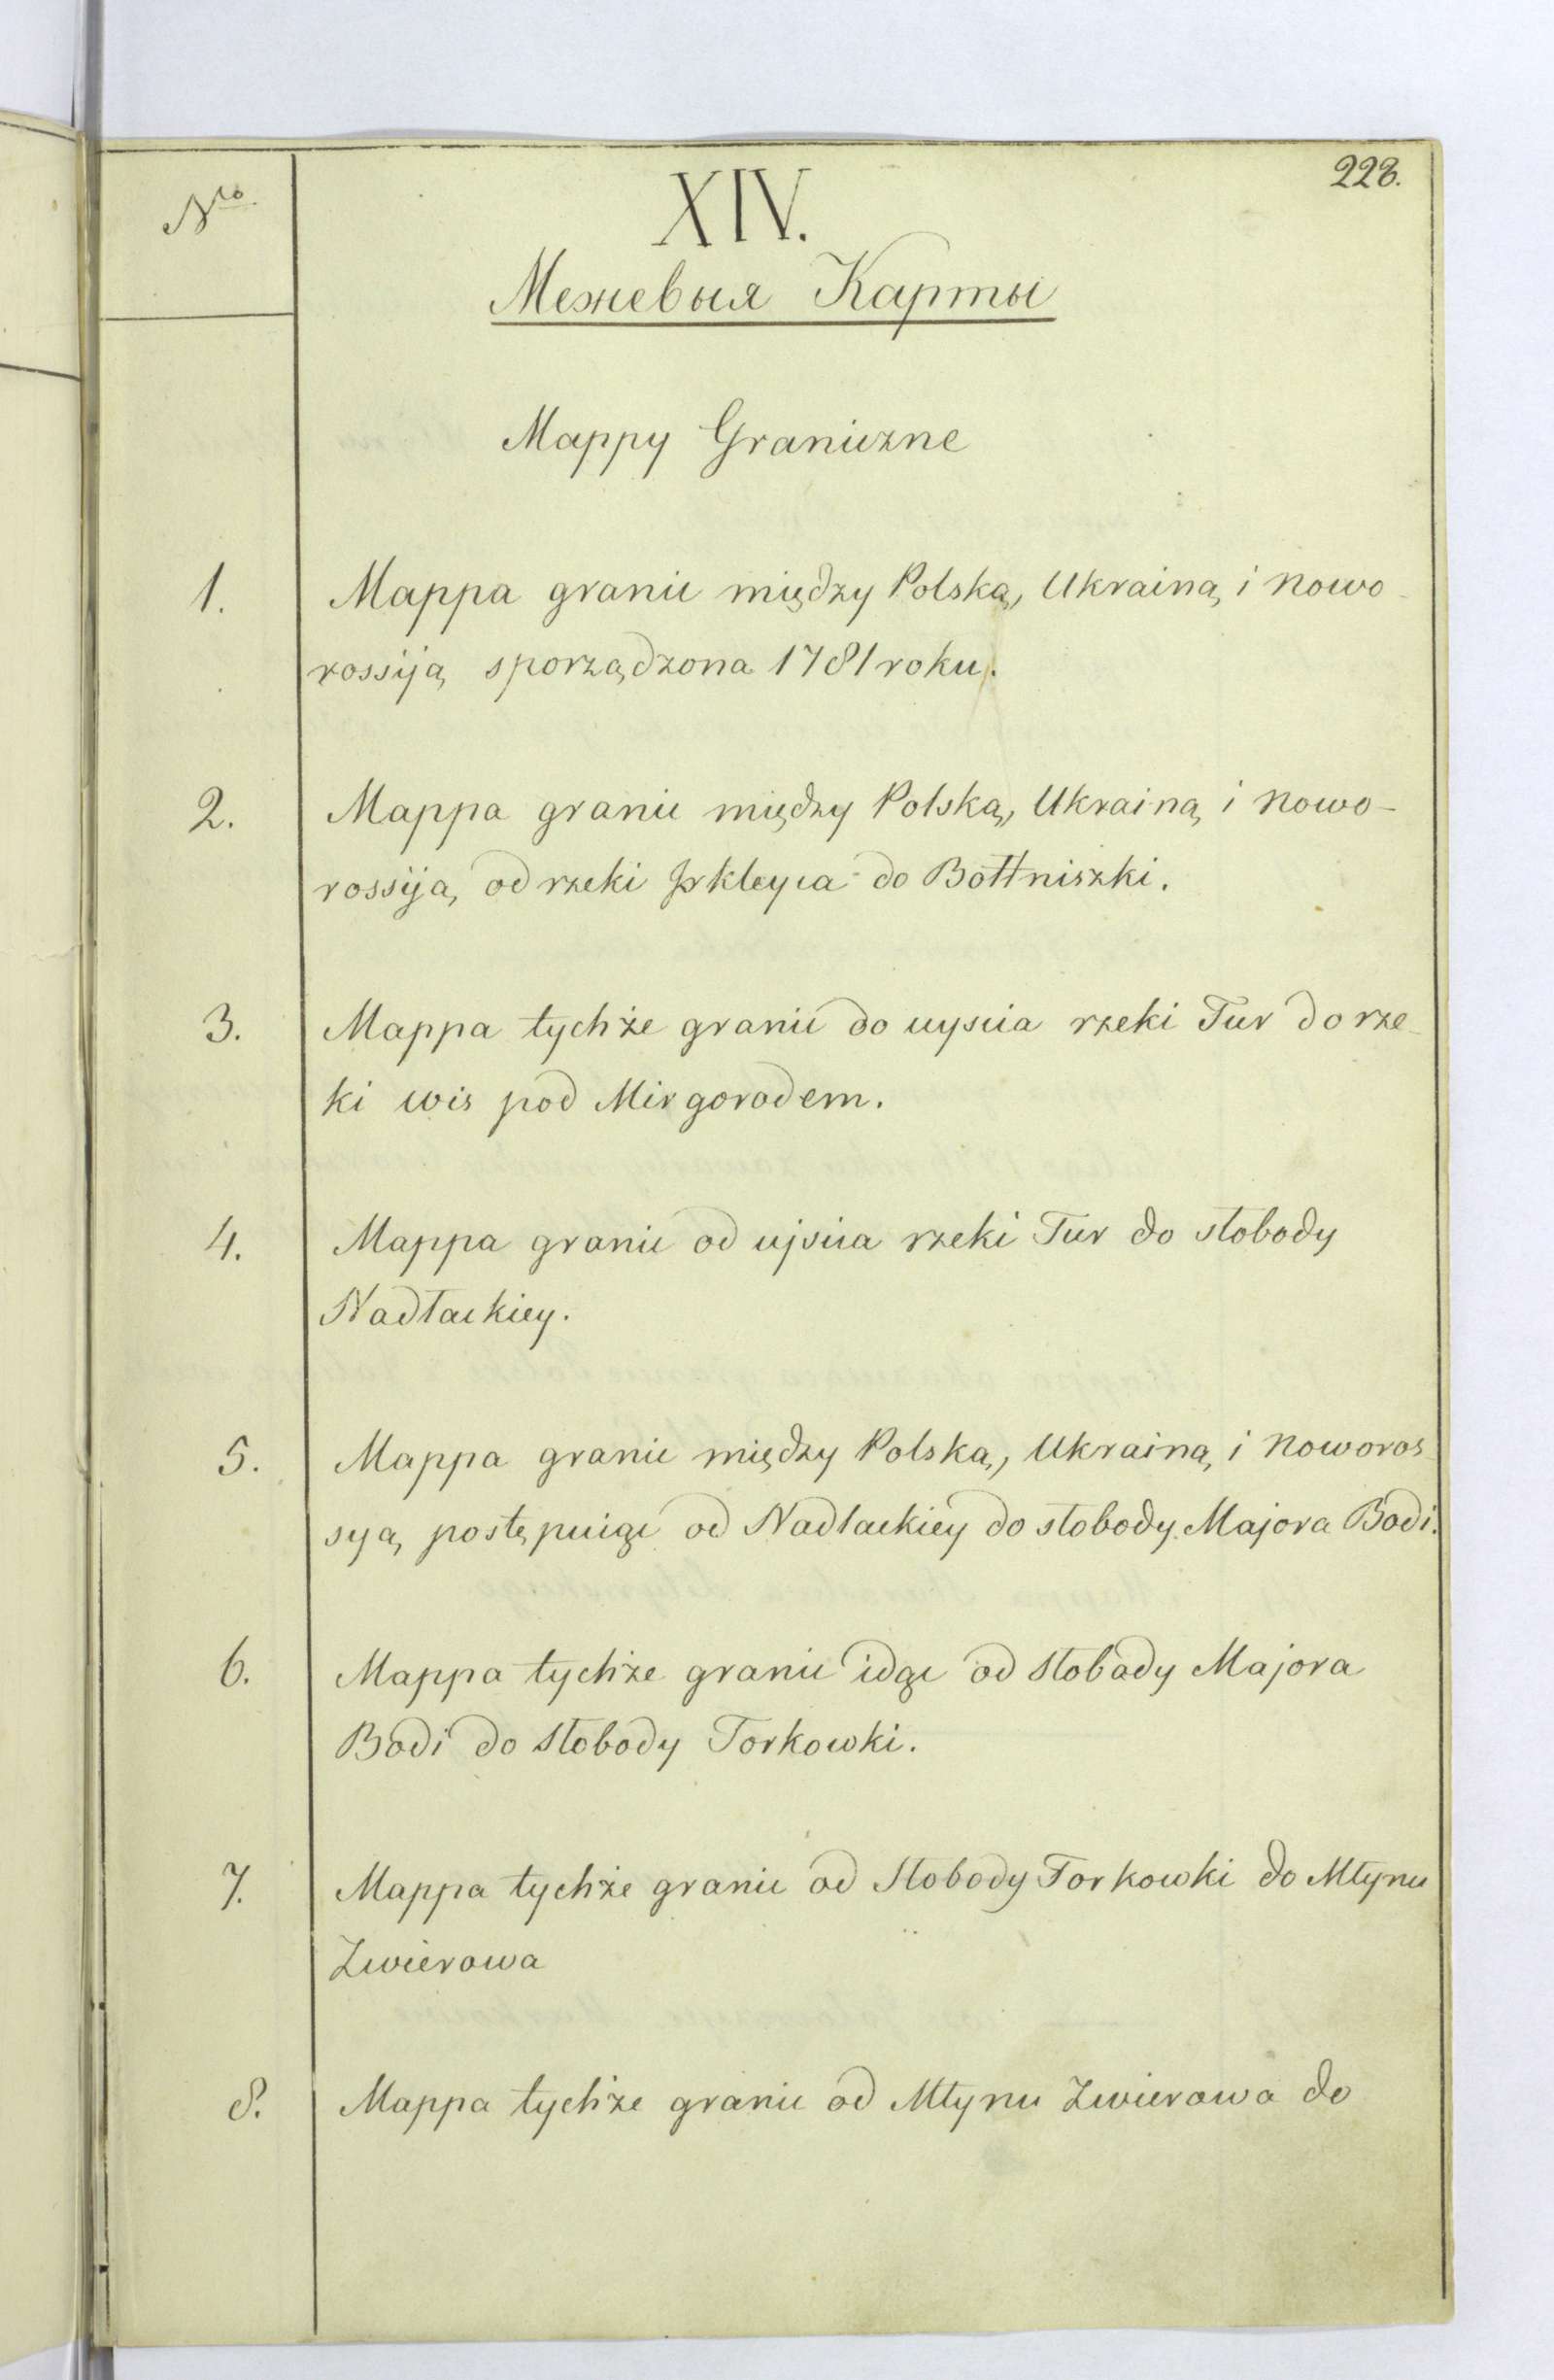 228.
Nro.
XIV.
Межевыя Карты
Mappy Graniczne
1. Mappa granic między Polską, Ukrainą i Nowo-
rossiją sporządzona 1781 roku.
2. Mappa granic między Polską, Ukrainą i Nowo-
rossiją, od rzeki Irkleyca do Bołtniszki.
3. Mappa tychże granic do uyscia rzeki Tur do rze-
ki wis pod Mirgorodem.
4. Mappa granic od ujscia rzeki Tur do słobody
Nadłackiey.
5. Mappa granic między Polską, Ukrainą i Noworos-
syą postępuiąc od Nadłackiey do słobody Majora Bodi.
6. Mappa tychże granic idąc od Słobady Majora
Bodi do Słobody Torkowki.
7. Mappa tychże granic od Słobody Torkowki do Młynu
Zwierowa
8. Mappa tychże granic od Młynu Zwierowa do